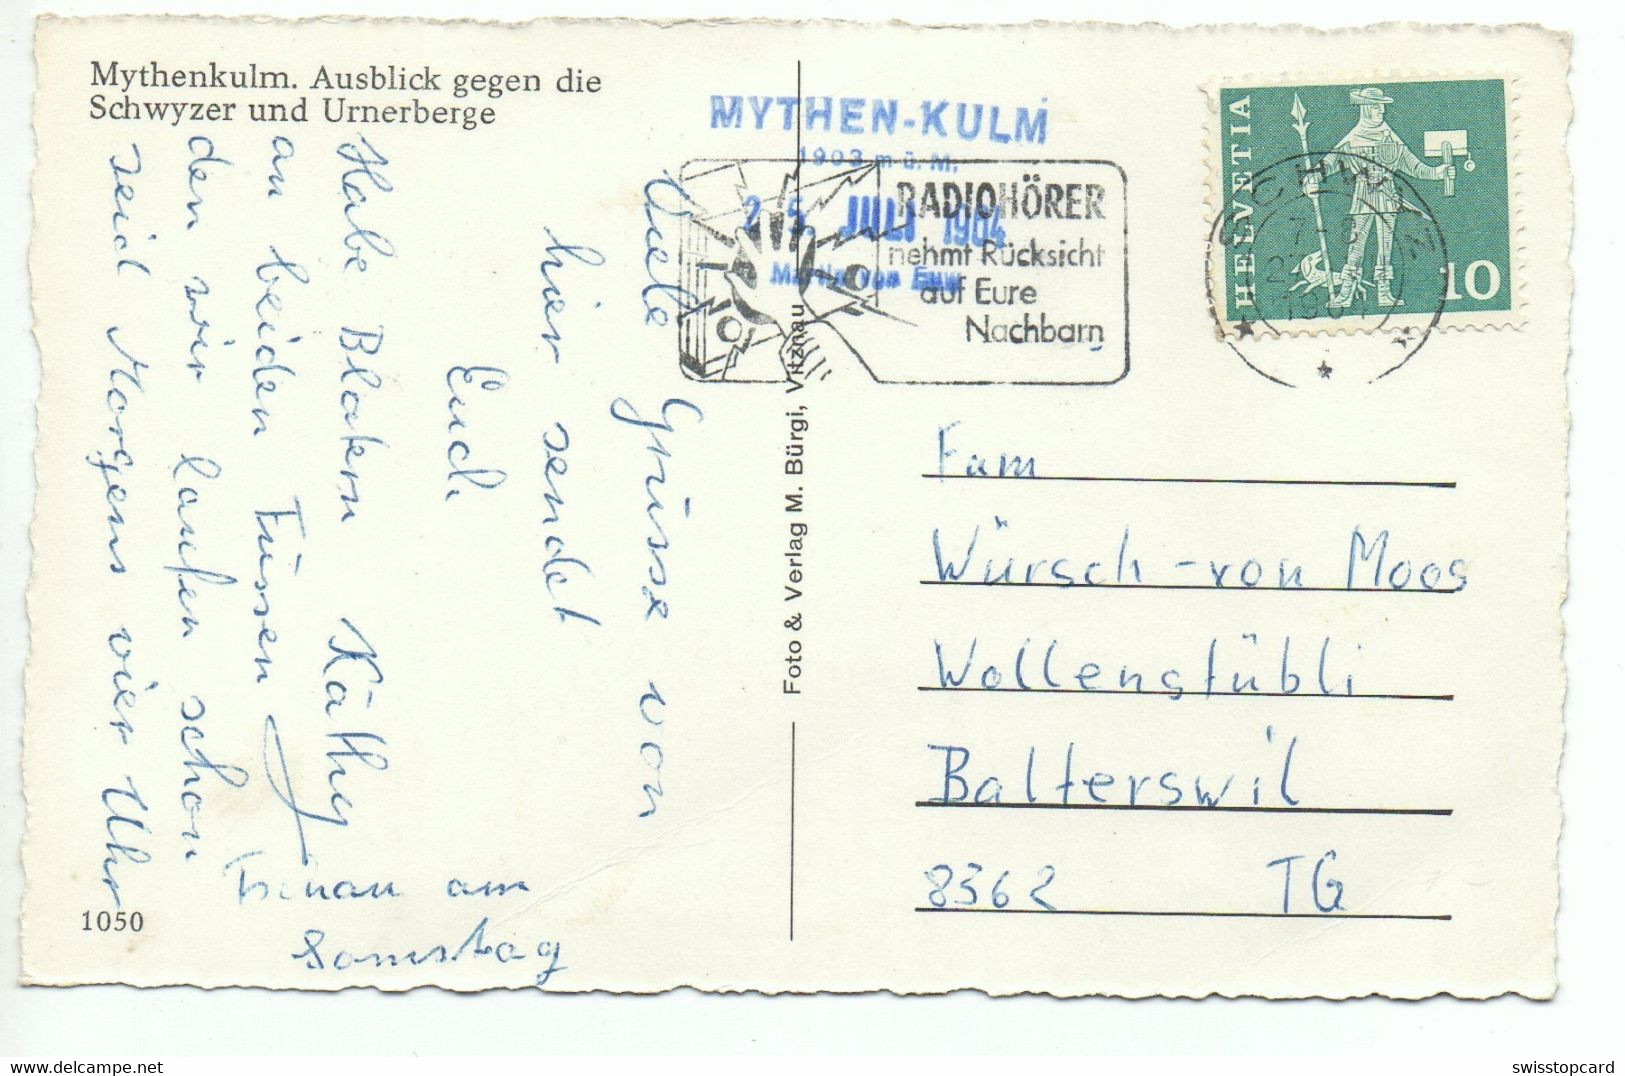 Mythenkulm. Ausblick gegen die
Schwyzer und Urnerberge
MYTHEN-KULM
1903 m ü. M.
25. JULI 1964
Martin von Euw
RADIOHÖRER
nehmt Rücksicht
auf Eure
Nachbarn
HELVETIA
10
SCHWYZ
7-8
1964
Viele Grüsse von
hier sendet
Euch
Käthy
Habe Blatern
an beiden Füssen
den wir laufen schon
seid Morgens vier Uhr
am
Samstag
Foto & Verlag M. Bürgi, Vitznau
Fam
Würsch-von Moos
Wollenstübli
Balterswil
8362 TG
1050
swisstopcard